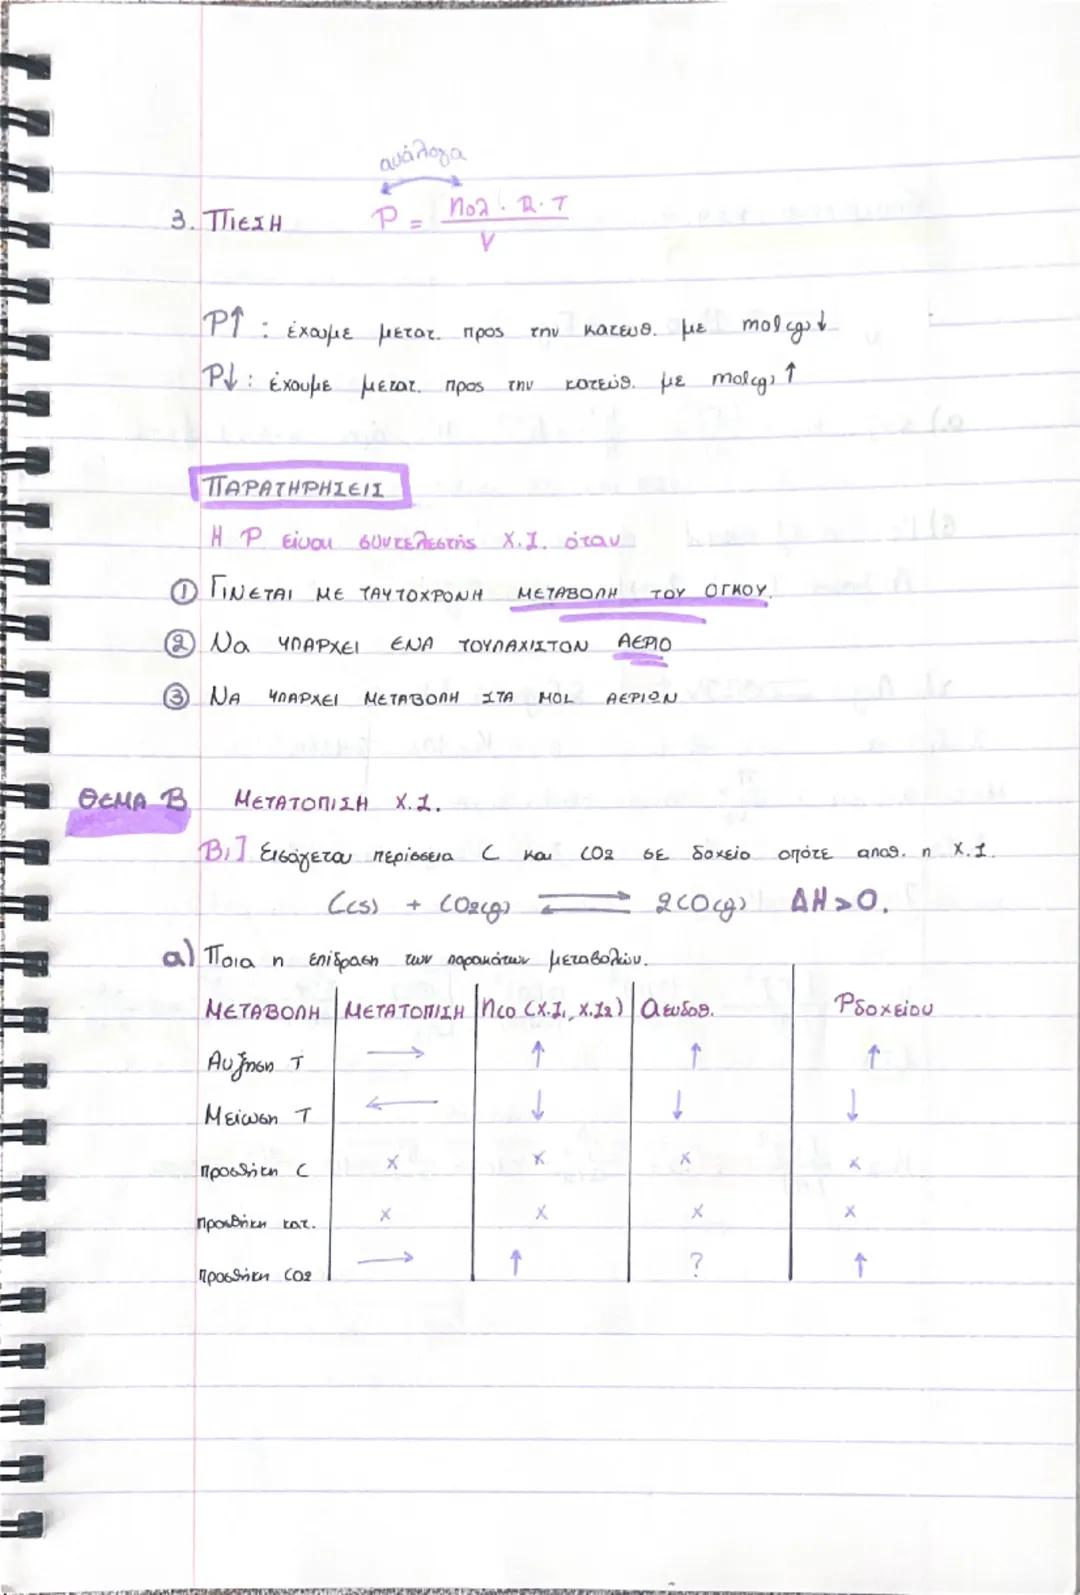 ανάλογα
3. ΠΙΕΣΗ P = nολ . R . T / V
P↑ : έχουμε μετατ. προς την κατευθ. με mol(g) ↓
P↓ : έχουμε μετατ. προς την κατεύθ. με mol(g) ↑
ΠΑΡΑΤΗΡΗΣΕΙΣ
Η P είναι συντελεστής Χ.Ι. όταν
① ΓΙΝΕΤΑΙ ΜΕ ΤΑΥΤΟΧΡΟΝΗ ΜΕΤΑΒΟΛΗ ΤΟΥ ΟΓΚΟΥ.
② Να ΥΠΑΡΧΕΙ ΕΝΑ ΤΟΥΛΑΧΙΣΤΟΝ ΑΕΡΙΟ
③ ΝΑ ΥΠΑΡΧΕΙ ΜΕΤΑΒΟΛΗ ΣΤΑ MOL ΑΕΡΙΩΝ
ΘΕΜΑ Β ΜΕΤΑΤΟΠΙΣΗ Χ.Ι.
Β1] Εισάγεται περίσσεια C και CO2 σε δοχείο οπότε αποθ. η Χ.Ι.
C(s) + CO2(g) ⇌ 2CO(g) ΔΗ>0.
α) Ποια η επίδραση των παρακάτων μεταβολών.
ΜΕΤΑΒΟΛΗ ΜΕΤΑΤΟΠΙΣΗ nco (Χ.Ι1, Χ.Ι2) α ευδοθ. Pδοχείου
Αυξηση T → ↑ ↑ ↑
Μείωση T ← ↓ ↓ ↓
προσθήκη C x x x x
προσθήκη κατ. x x x x
προσθήκη CO2 → ↑ ? ↑